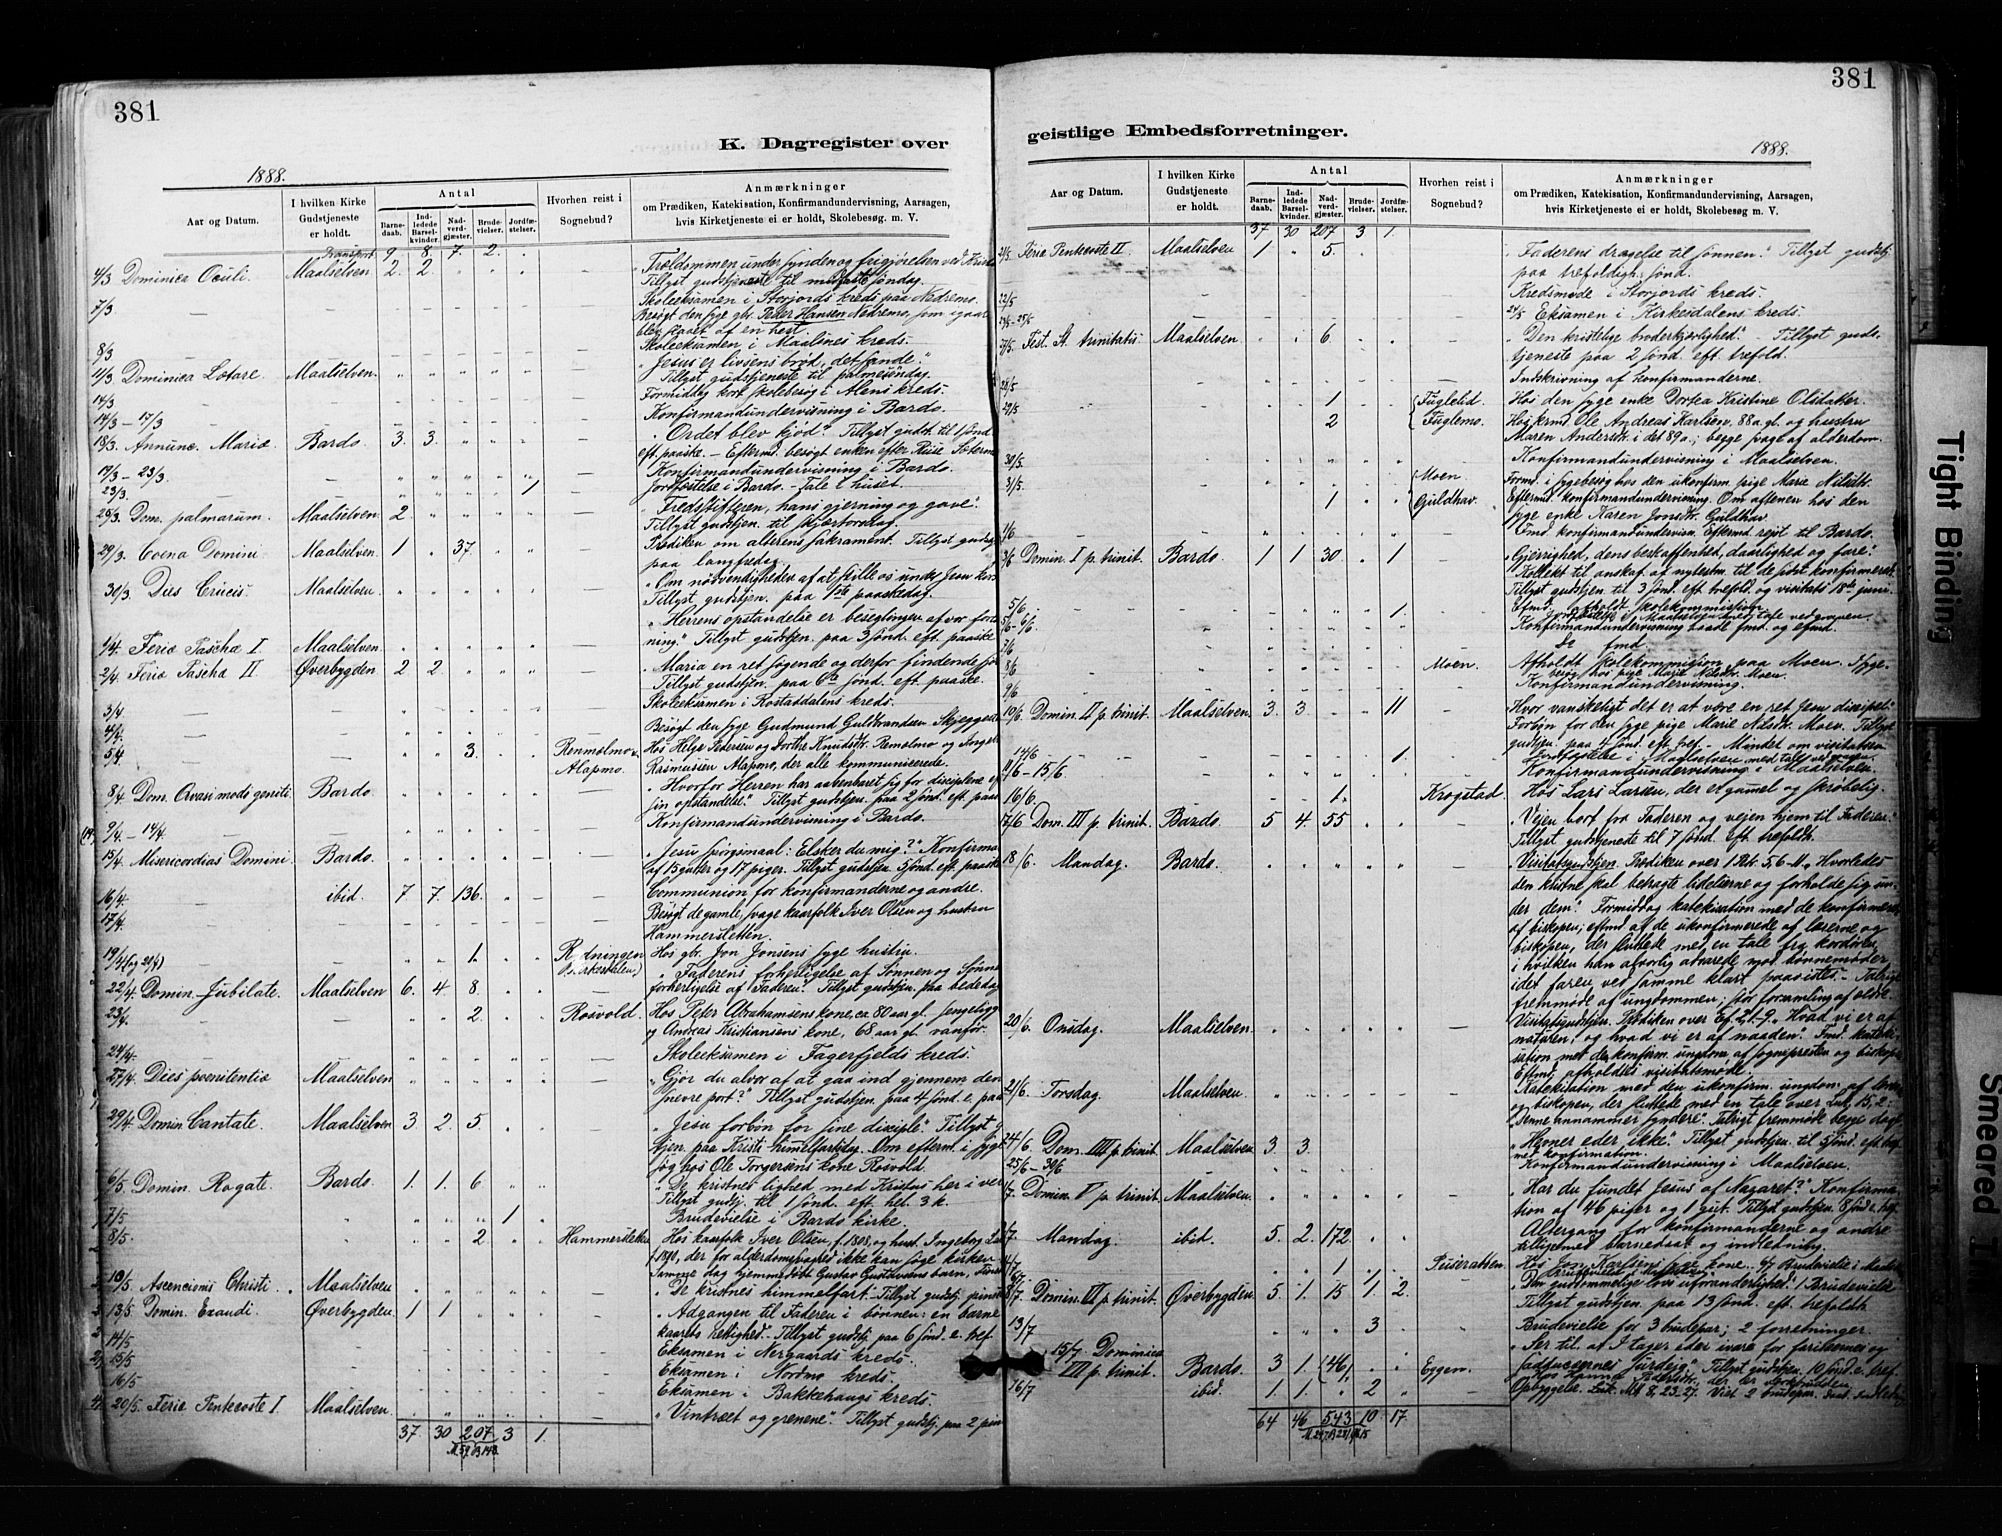 381
K. Dagregister over
1888.
Aar og Datum.
I hvilken Kirke Gudstjeneste er holdt.
Antal
Barne-daab.
Ind-ledede Barsel-kvinder.
Nad-verd-gjæster.
Brude-vielser.
Jordfæ-stelser.
Hvorhen reist i Sognebud?
Anmærkninger
om Prædiken, Katekisation, Konfirmandundervisning, Aarsagen,
hvis Kirketjeneste ei er holdt, Skolebesøg m. V.
Transport 9. 8. 7. 2.
4/3 Dominica Oculi. Maalselven. 2. 2. Trældommen under synden og frigjørelsen ved
Tillyst gudstjeneste til midfaste søndag.
7/3 Skoleeksamen i Storjords kreds paa Nedremo.
Besøgt den syge gbr. Peder Hansen Nedremo, som igaar
blev slaaet af en hest.
8/3 Skoleeksamen i Maalsnes kreds.
"Jesus er livsens brød, det sande."
11/3 Dominica Lætare. Maalselven. Tillyst gudstjeneste til palmesøndag.
14/3 Formiddag kort skolebesøg i Alens kreds.
14/3 – 17/3 Konfirmandundervisning i Bardo.
18/3. Annunc. Mariæ Bardo. 3. 3. "Ordet blev kjød." Tillyst gudst. til 1 sønd.
eft. paaske. – Eftermd. besøgt enken efter
19/3 – 23/3. Konfirmandundervisning i Bardo.
23/3. 1 Jordfæstelse i Bardo. – Tale i huset.
25/3. Dom. palmarum. Maalselven. 2. "Fredsstifteren, hans gjerning og gave."
Tillyst gudstjen. til skjærtorsdag.
29/3. Coena Domini Maalselven. 1 37. Prædiken om alterens sakrament. Tillyst gudstj.
paa langfredag.
30/3. Dies Crucis. Maalselven. "Om nødvendigheden af at stille os under Jesu kors
Tillyst gudstjen. paa 1ste paaskedag.
"Herrens opstandelse er beseglingen af vor forso-
1/4. Feria Pascha I Maalselven. ning." Tillyst gudstjen. paa 3 sønd. eft. paaske.
2/4. Feria Pascha II Øverbygden 2 2 "Maria en ret søgende og derfor findende
Tillyst gudstjen. paa 6te sønd. eft. paaske.
3/4. Skoleeksamen i Rostaddalens kreds.
4/4. Besøgt den syge Gudmund Guldbrandsen
5/4. 3. Renmælmo Hos Helge Pedersen og Dorthe Knudsdtr. Remolmo og
Alapmo. Rasmussen Alapmo, der alle kommunicerede.
8/4. Dom. Qvasi modo geniti Bardo. "Hvorfor Herren har aabenbaret sig for disciplene ef
sin opstandelse." Tillyst gudstjen. paa 2 sønd. eft. paask
9/4. – 14/4. Konfirmandundervisning i Bardo.
15/4. Misericordias Domini. Bardo. "Jesu spørgsmaal: Elsker du mig?" Konfirma
af 13 gutter og 17 piger. Tillyst gudstjen. 5 sønd. eft. paaske
16/4. ibid. 7 7. 136. Communion for konfirmanderne og andre.
17/4. Besøgt de gamle, svage kaarfolk Iver Olsen og hustru
Hammersletten.
19/4 (og 20/4) 1. Rydningen Hos gbr. Jon Jonsens syge hustru.
"Faderens forherligelse af Sønnen og Sønne
22/4. Domin. Jubilate. Maalselven 6. 4. 8. forherligelse af Faderen." Tillyst gudstjen. paa bededag
23/4. 2. Rosvold. Hos Peter Abrahamsens kone, ca. 80 aar gl. sengeligg
og Andreas Kristiansens kone, 68 aar gl. vanfør.
24/4. Skoleeksamen i Fagerfjelds kreds.
27/4. Dies poenitentiæ Maalselven "Gjør du alvor af at gaa ind gjennem den
snevre port?" Tillyst gudstjen. paa 4 sønd. e. paa
29/4. Domin. Cantate. Maalselven 3 2. 5. "Jesu forbøn for sine disciple." Tillyst g
tjen. paa Kristi himmelfartsdag. Om efterm. i syge
søg hos Ole Torgersens kone Rosvold.
6/5. Domin. Rogate. Bardo. 1. 1. 6 "De kristnes lighed med Kristus her i ver
Tillyst gudstj. til 1 sønd. eft. hel. 3 k.
7/5 1 Brudevielse i Bardo kirke.
8/5. 2 Hammersletten Hos kaarfolk Iver Olsen, f. 1808, og hust. Ingeborg
f. 1810, der for alderdomssvaghed ikke kan søge kirken.
Samme dag hjemmedøbt Gustav Gustavsens barn,
10/5. Ascencionis Christi. Maalselven "De kristnes himmelfart." Tillyst gudstj. pinse
13/5. Domin. Exaudi Øverbygden 1 1 "Adgangen til Faderen i bønnen: en barne
kaarets rettighed." Tillyst gudstj. paa 6 sønd. e. tref.
14/5 Eksamen i Nergaards kreds.
15/5 Eksamen i Nordmo kreds.
16/5 Eksamen i Bakkehaugs kreds.
20/5. Feria Pentecoste I. Maalselven "Vintræet og grenene." Tillyst gudstj. paa 2 pin
37 30 207 3 1.
381
geistlige Embedsforretninger.
1888.
Aar og Datum.
I hvilken Kirke Gudstjeneste er holdt.
Antal
Barne-daab.
Ind-ledede Barsel-kvinder.
Nad-verd-gjæster.
Brude-vielser.
Jordfæ-stelser.
Hvorhen reist i Sognebud?
Anmærkninger
om Prædiken, Katekisation, Konfirmandundervisning, Aarsagen,
hvis Kirketjeneste ei er holdt, Skolebesøg m. V.
37 30 207 3 1.
21/5. Feria Pentecoste II Maalselven 1 5. "Faderens dragelse til sønnen." Tillyst gudstj.
paa trefoldigh. sønd.
22/5 Kredsmøde i Storjords kreds.
23/5 – 25/5 24/5 Eksamen i Kirkesdalens kreds.
27/5. Fest. St. trinitatis Maalselven. 6. "Den kristelige broderkjærlighed." Tillyst guds-
tjeneste paa 2 sønd. eft. trefold.
28/5 Indskrivning af konfirmanderne.
29/5 1 Fuglelid. Hos den syge enke Dortea Kristine Olsdatter
2 Fuglemo. Hos krmd. Ole Andreas Karlsen, 88 a. gl. og hustru
Maren Andersdtr. i det 89 a.; begge svage af alderdom.
30/5. Konfirmandundervisning i Maalselven.
31/5. Moen Formd. i sygebesøg hos den ukonfirm. pige Marie Nilsdtr.
1 Guldhav. Eftermd. konfirmandundervisning. Om aftenen hos den
syge enke Karen Jonsdtr. Guldhav.
1/6 Fmd. konfirmandundervisn. Eftermd. rejst til Bardo.
3/6 Domin. I p. trinit. Bardo. 1 1 30 1 "Gjerrighed, dens beskaffenhed, daarlighed og fare."
Kollekt til anskaf. af nytestm. til de sidst konfirmerede.
Tillyst gudstjen. til 3 sønd. eft. trefold. og visitats 18de juni.
5/6 1. Efmd. afholdt skolekommission.
5/6 – 6/6. Konfirmandundervisning baade fmd. og efmd.
7/6 fmd.
8/6 Moen. Afholdt skolekommission paa Moen. Syge-
besøg hos pige Marie Nilsdtr. Moen.
9/6 Konfirmandundervisning.
10/6. Domin. II p. trinit. Maalselven. 3. 3. 11 "Hvor vanskeligt det er at være en ret Jesu discipel."
Forbøn for den syge pige Marie Nilsdtr. Moen. Tillyst
gudstjen. paa 4 sønd. eft. tref. – Mindet om visitatsen
14/6 1. Jordfæstelse i Maalselven med tale ved graven.
11/6 – 15/6. Konfirmandundervisning i Maalselven.
16/6. 1. Krogstad. Hos Lars Larsen, der er gammel og skrøbelig.
17/6. Dom. III p. trinit. Bardo. 5 4. 55 "Vejen bort fra Faderen og vejen hjem til Faderen."
Tillyst gudstjeneste til 7 sønd. eft. trefoldh.
18/6. Mandag. Bardo. Visitatsgudstjen. Prædiken over 1 Petr. 5, 6-11, "Hvorledes
den kristne skal betragte lidelserne og forholde sig un-
der dem." Formiddag katekisation med de konfirmerede
af biskopen; eftmd. af de ukonfirmerede af læserne og
biskopen, der sluttede med en tale fra kordøren,
i hvilken han alvorlig advarede mod dønnemøder,
idet faren ved samme klart paavistes. – Talrigt
fremmøde af ungdommen; stor forsamling af ældre.
20/6. Onsdag. Maalselven. Visitatsgudstjen. Prædiken over Ef. 2, 1-9. "Hvad vi er af
naturen, og hvad vi er af naaden." Fmd. kateki-
sation med den konfirm. ungdom af sognepresten og biskopen
Eftmd. afholdtes visitatsmøde.
21/6. Torsdag. Maalselven. Katekisation med den ukonfirm. ungdom af lærerne
og biskopen, der sluttede med en tale over Luk. 15, 2:
"Denne annammer syndere." Talrigt fremmøde begge dage
24/6 Dom. IIII p. trinit. Maalselven 3 3. "Hevner eder ikke." Tillyst gudstjen. til 5 sønd. eft. tref.
med konfirmation.
25/6 – 30/6 Konfirmandundervisning i Maalselven.
1/7. Domin. V p. trinit. Maalselven. "Har du fundet Jesus af Nazaret?" Konfirma-
tion af 46 piger og 1 gut. Tillyst gudstjen. 8 sønd. e. tref.
Mandag. ibid. 5. 2. 172 Altergang for konfirmanderne og andre
tilligemed barnedaab og indledning.
1 Hos Jon Karlsens syge kone.
8/7. Domin. VI p. trinit. Øverbygden 5. 1. 15 1. 2. "Den gudsommelige lovs uforanderlighed." 1 Brudevielse
Tillyst gudstjen. paa 13 sønd. eft. trefoldh.
13/7 3 Brudevielse for 3 brudepar; 2 forretninger.
15/7 Dominica VII p. trinit. Bardo. 3 1. (46) "Ser til, at I tager eder ivare for farisæernes og
saddukæernes surdejg". Tillyst gudstjen. 10 sønd. e. tref.
16/7 ibid. 1. 1. 2
64 46 543 10 17.
Tight Binding
Smeared I